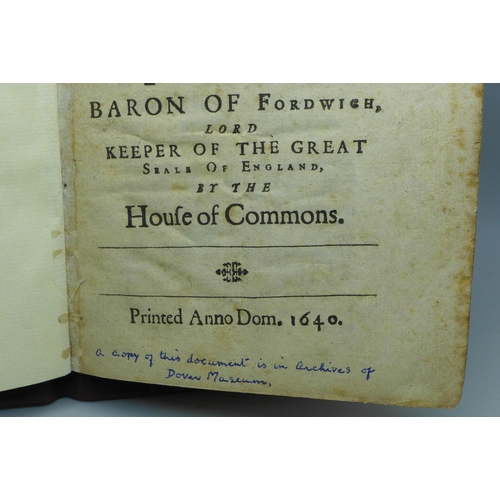 BARON OF FORDWICH,
LORD
KEEPER OF THE GREAT
SEALE OF ENGLAND,
BY THE
Houſe of Commons.
Printed Anno Dom. 1640.
A copy of this document is in archives of
Dover Museum.